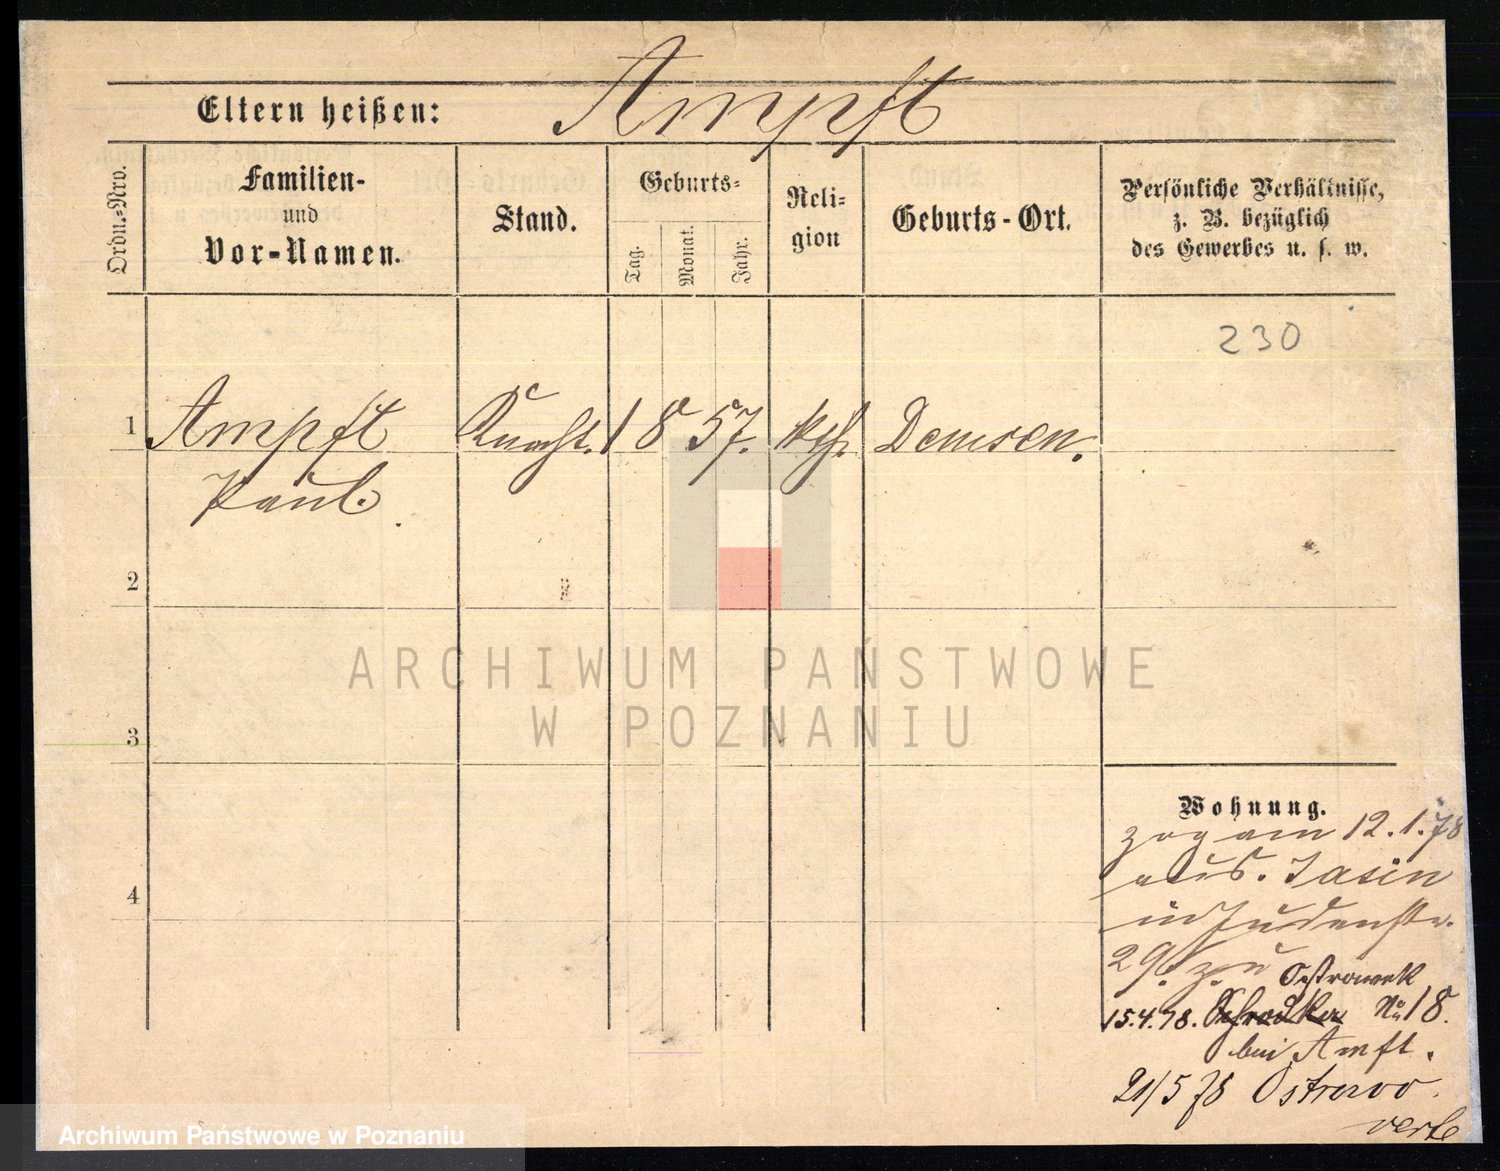 Eltern heißen: Ampft
Ordn.-Nro.
Familien-
und
Vor-Namen.
Stand.
Geburts-
Tag.
Monat.
Jahr.
Reli-
gion
Geburts-Ort.
Persönliche Verhältnisse,
z. B. bezüglich
des Gewerbes u. s. w.
230
1 Ampft Knecht. 1 8 57. kth. Demsen.
Paul.
2
3
4
ARCHIWUM PAŃSTWOWE
W POZNANIU
Wohnung.
zog am 12.1.78
aus. Jasin
in Judenstr.
29. zu
Ostrowek
15.4.78. Schrodker No 18.
bei Amft.
21/5 78 Ostrowo
verte
Archiwum Państwowe w Poznaniu